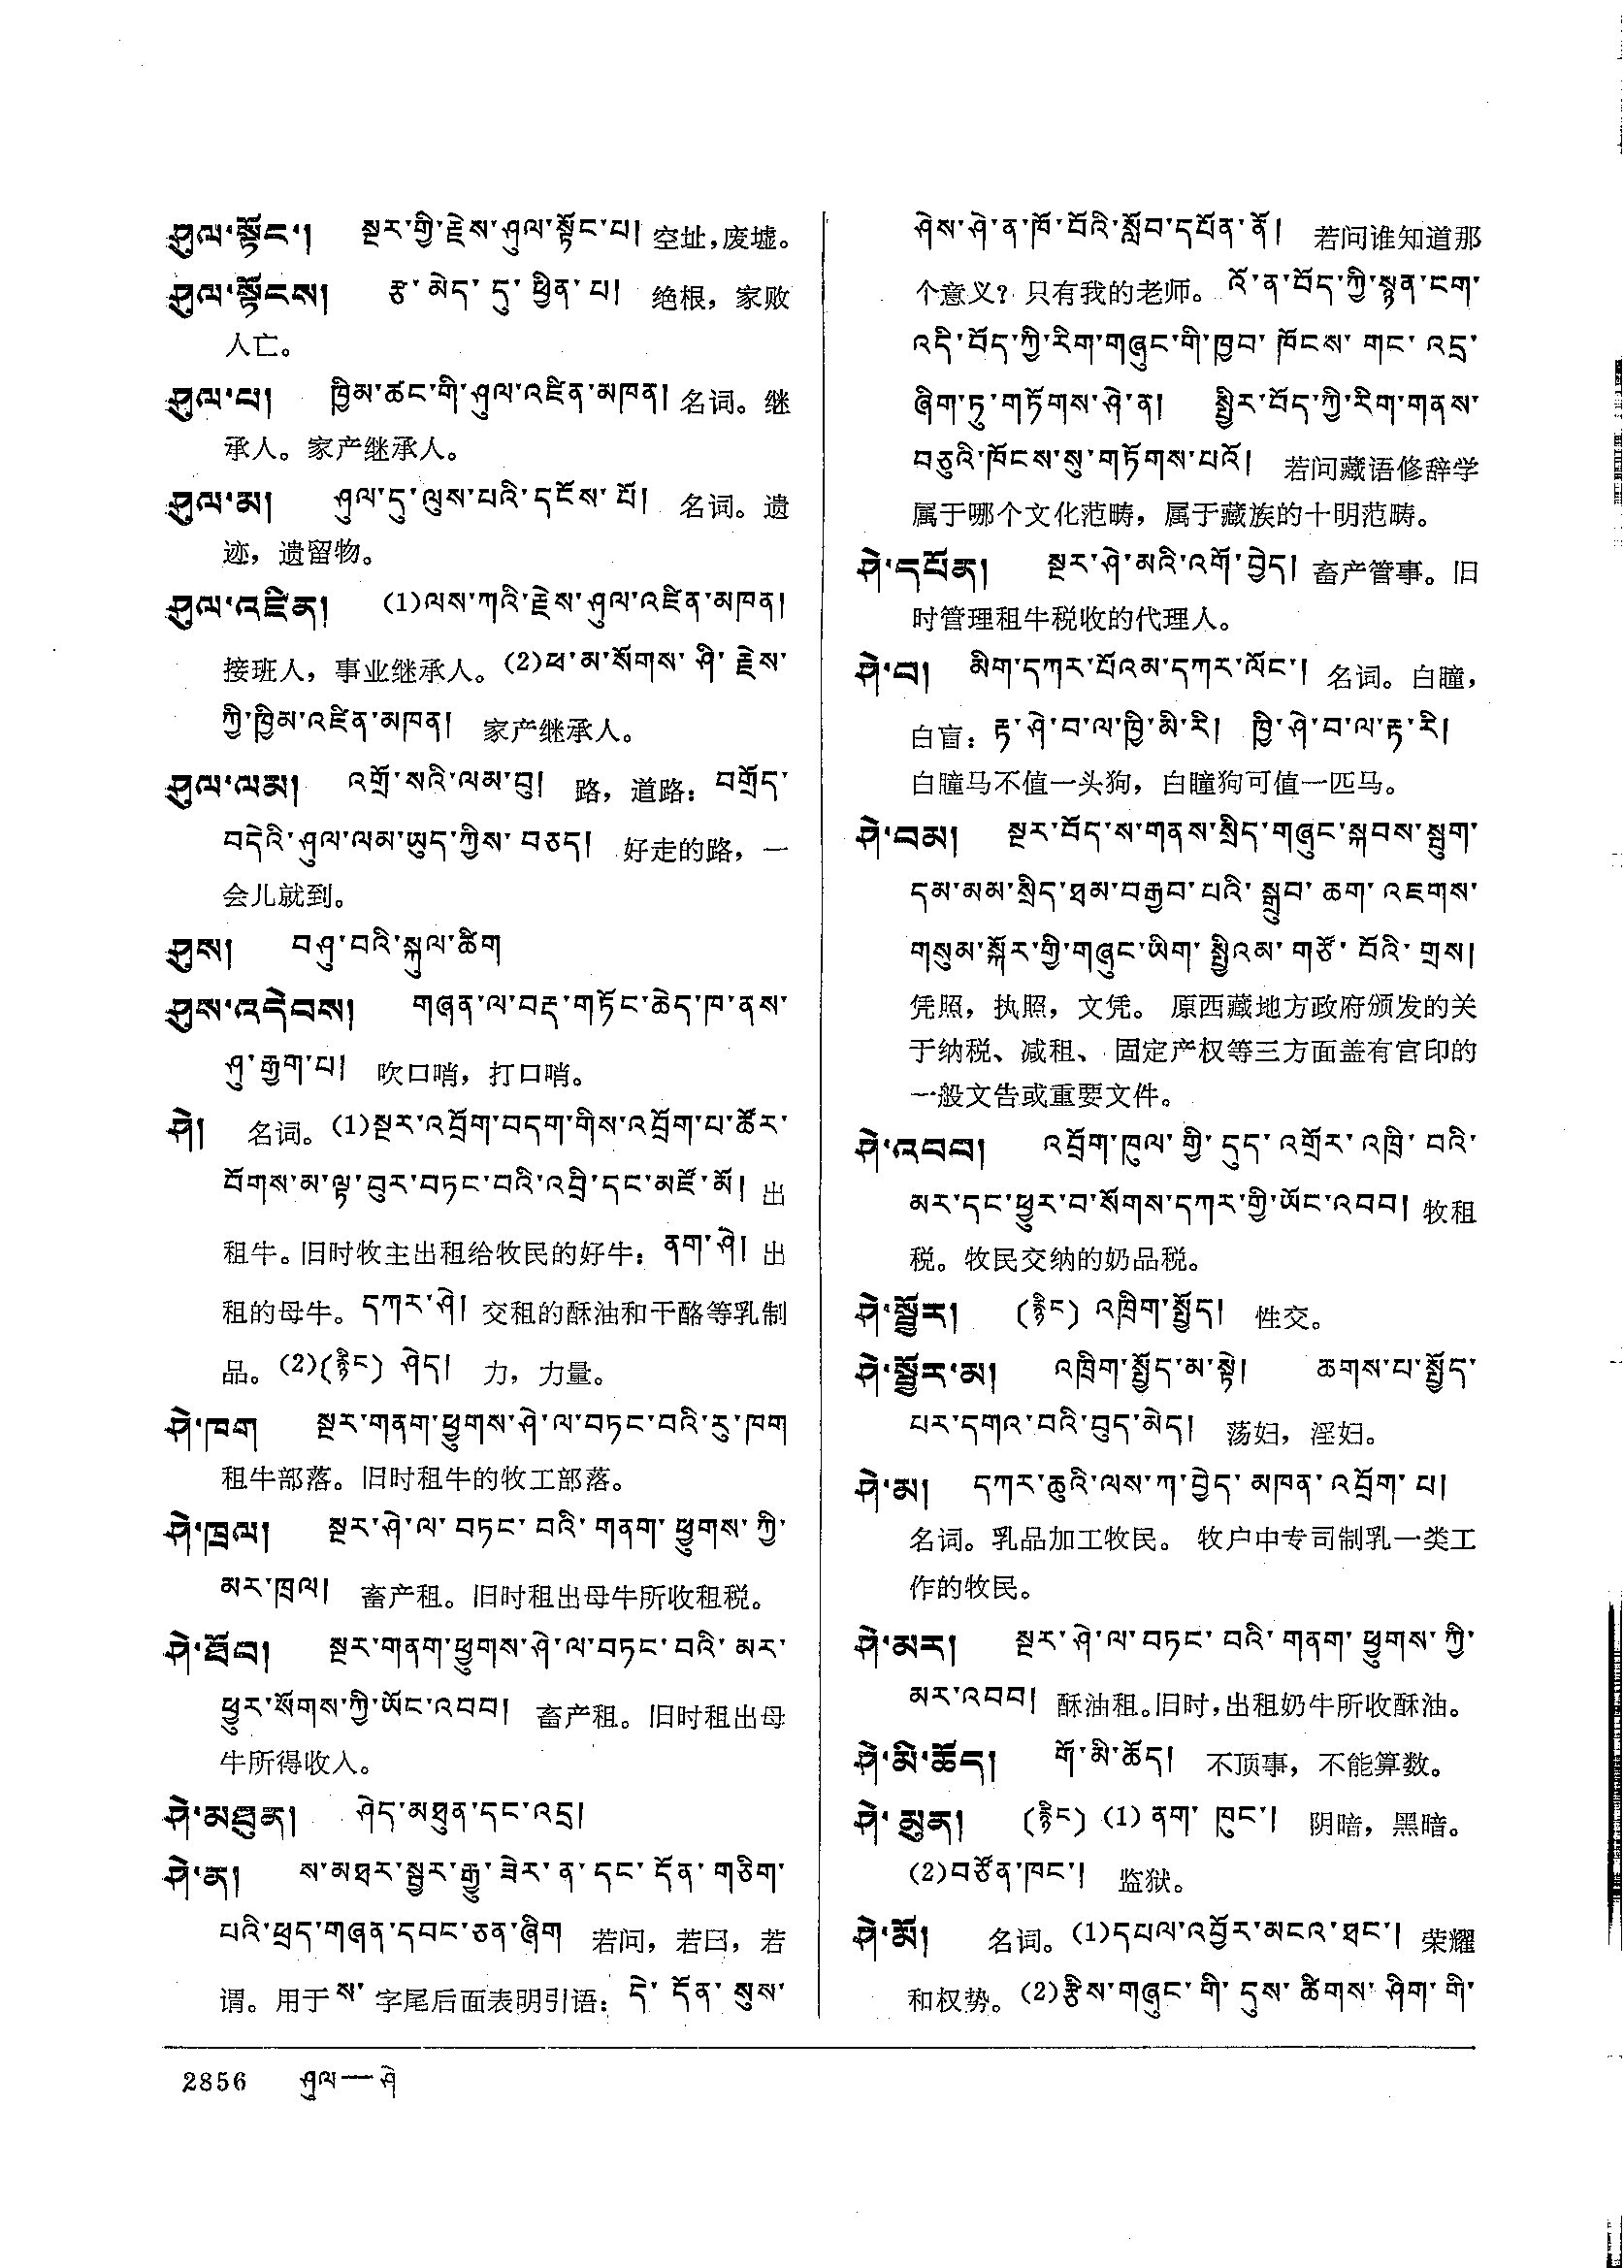 ཤུལ་སྟོང་། སྔར་གྱི་རྗེས་ཤུལ་སྟོང་པ། 空址,废墟。
ཤུལ་སྟོངས། རྩ་མེད་དུ་ཕྱིན་པ། 绝根，家败
人亡。
ཤུལ་པ། ཁྱིམ་ཚང་གི་ཤུལ་འཛིན་མཁན། 名词。继
承人。家产继承人。
ཤུལ་མ། ཤུལ་དུ་ལུས་པའི་དངོས་པོ། 名词。遗
迹，遗留物。
ཤུལ་འཛིན། (1)ལས་ཀའི་རྗེས་ཤུལ་འཛིན་མཁན།
接班人，事业继承人。(2)ཕ་མ་སོགས་ཤི་རྗེས་
ཀྱི་ཁྱིམ་འཛིན་མཁན། 家产继承人。
ཤུལ་ལམ། འགྲོ་སའི་ལམ་བུ། 路，道路：བགྲོད་
བདེའི་ཤུལ་ལམ་ཡུད་ཀྱིས་བཅད། 好走的路，一
会儿就到。
ཤུས། བཤུ་བའི་སྐུལ་ཚིག
ཤུས་འདེབས། གཞན་ལ་བརྡ་གཏོང་ཆེད་ཁ་ནས་
ཤུ་རྒྱག་པ། 吹口哨，打口哨。
ཤེ། 名词。(1)སྔར་འབྲོག་བདག་གིས་འབྲོག་པ་ཚོར་
བོགས་མ་ལྟ་བུར་བཏང་བའི་འབྲི་དང་མཛོ་མོ། 出
租牛。旧时牧主出租给牧民的好牛：ནག་ཤེ། 出
租的母牛。དཀར་ཤེ། 交租的酥油和干酪等乳制
品。(2)(རྙིང) ཤེད། 力，力量。
ཤེ་ཁག སྔར་གནག་ཕྱུགས་ཤེ་ལ་བཏང་བའི་རུ་ཁག
租牛部落。旧时租牛的牧工部落。
ཤེ་ཁྲལ། སྔར་ཤེ་ལ་བཏང་བའི་གནག་ཕྱུགས་ཀྱི་
མར་ཁྲལ། 畜产租。旧时租出母牛所收租税。
ཤེ་ཐོབ། སྔར་གནག་ཕྱུགས་ཤེ་ལ་བཏང་བའི་མར་
ཕྱུར་སོགས་ཀྱི་ཡོང་འབབ། 畜产租。旧时租出母
牛所得收入。
ཤེ་མཐུན། ཤེད་མཐུན་དང་འདྲ།
ཤེ་ན། ས་མཐར་སྦྱར་རྒྱུ་ཟེར་ན་དང་དོན་གཅིག་
པའི་ཕྲད་གཞན་དབང་ཅན་ཞིག 若问，若曰，若
谓。用于ས་字尾后面表明引语：དེ་དོན་སུས་
ཤེས་ཤེ་ན་ཁོ་བོའི་སློབ་དཔོན་ནོ། 若问谁知道那
个意义？只有我的老师。འོ་ན་བོད་ཀྱི་སྙན་ངག་
འདི་བོད་ཀྱི་རིག་གཞུང་གི་ཁྱབ་ཁོངས་གང་འདྲ་
ཞིག་ཏུ་གཏོགས་ཤེ་ན། སྤྱིར་བོད་ཀྱི་རིག་གནས་
བཅུའི་ཁོངས་སུ་གཏོགས་པའོ། 若问藏语修辞学
属于哪个文化范畴，属于藏族的十明范畴。
ཤེ་དཔོན། སྔར་ཤེ་མའི་འགོ་བྱེད། 畜产管事。旧
时管理租牛税收的代理人。
ཤེ་བ། མིག་དཀར་པོའམ་དཀར་ལོང་། 名词。白瞳，
白盲：རྟ་ཤེ་བ་ལ་ཁྱི་མི་རི། ཁྱི་ཤེ་བ་ལ་རྟ་རི།
白瞳马不值一头狗，白瞳狗可值一匹马。
ཤེ་བམ། སྔར་བོད་ས་གནས་སྲིད་གཞུང་སྐབས་སྦུག་
དམ་མམ་སྲིད་ཐམ་བརྒྱབ་པའི་སྒྲུབ་ཆག་འཇགས་
གསུམ་སྐོར་གྱི་གཞུང་ཡིག་སྤྱིའམ་གཙོ་བོའི་གྲས།
凭照，执照，文凭。原西藏地方政府颁发的关
于纳税、减租、固定产权等三方面盖有官印的
一般文告或重要文件。
ཤེ་འབབ། འབྲོག་ཁུལ་གྱི་དུད་འགྲོར་འཁྲི་བའི་
མར་དང་ཕྱུར་བ་སོགས་དཀར་གྱི་ཡོང་འབབ། 牧租
税。牧民交纳的奶品税。
ཤེ་སྦྱོར། (རྙིང) འཁྲིག་སྤྱོད། 性交。
ཤེ་སྦྱོར་མ། འཁྲིག་སྤྱོད་མ་སྟེ། ཆགས་པ་སྤྱོད་
པར་དགའ་བའི་བུད་མེད། 荡妇，淫妇。
ཤེ་མ། དཀར་ཆུའི་ལས་ཀ་བྱེད་མཁན་འབྲོག་པ།
名词。乳品加工牧民。牧户中专司制乳一类工
作的牧民。
ཤེ་མར། སྔར་ཤེ་ལ་བཏང་བའི་གནག་ཕྱུགས་ཀྱི་
མར་འབབ། 酥油租。旧时，出租奶牛所收酥油。
ཤེ་མི་ཆོད། གོ་མི་ཆོད། 不顶事，不能算数。
ཤེ་མུན། (རྙིང) (1)ནག་ཁུང་། 阴暗，黑暗。
(2)བཙོན་ཁང་། 监狱。
ཤེ་མོ། 名词。(1)དཔལ་འབྱོར་མངའ་ཐང་། 荣耀
和权势。(2)རྩིས་གཞུང་གི་དུས་ཚིགས་ཤིག་གི་
2856 ཤུལ—ཤེ